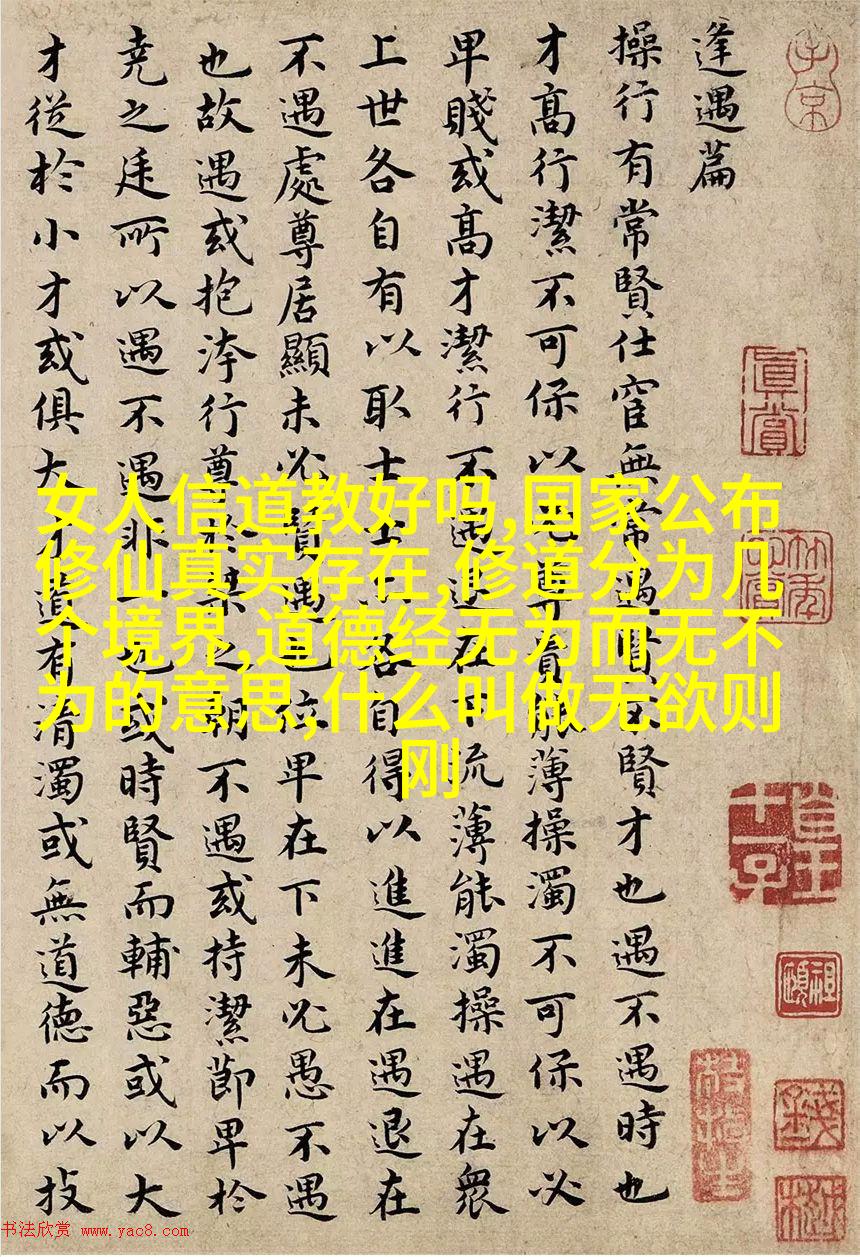 逢遇篇
操行有常賢仕宦無常遇賢不賢才也遇不遇時也
才高行潔不可保以必尊貴能薄操濁不可保以必
卑賤或高才潔行不遇退在下流薄能濁操遇在眾
上世各自有以取士士亦各自得以進進在遇退在
不遇處尊居顯未必賢遇也位卑在下未必愚不遇
也故遇或抱洿行尊於桀之朝不遇或持潔節卑於
堯之廷所以遇不遇非一也或時賢而輔惡或以大
才從於小才或俱大才道有清濁或無道德而以技
女人信道教好吗,国家公布
修仙真实存在,修道分为几
个境界,道德经无为而无不
为的意思,什么叫做无欲则
刚
眞賞
书法欣赏 www.yac8.com